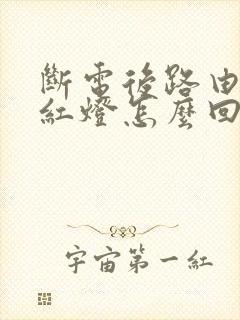 斷電後路由
紅燈怎麼回
宇宙第一紅